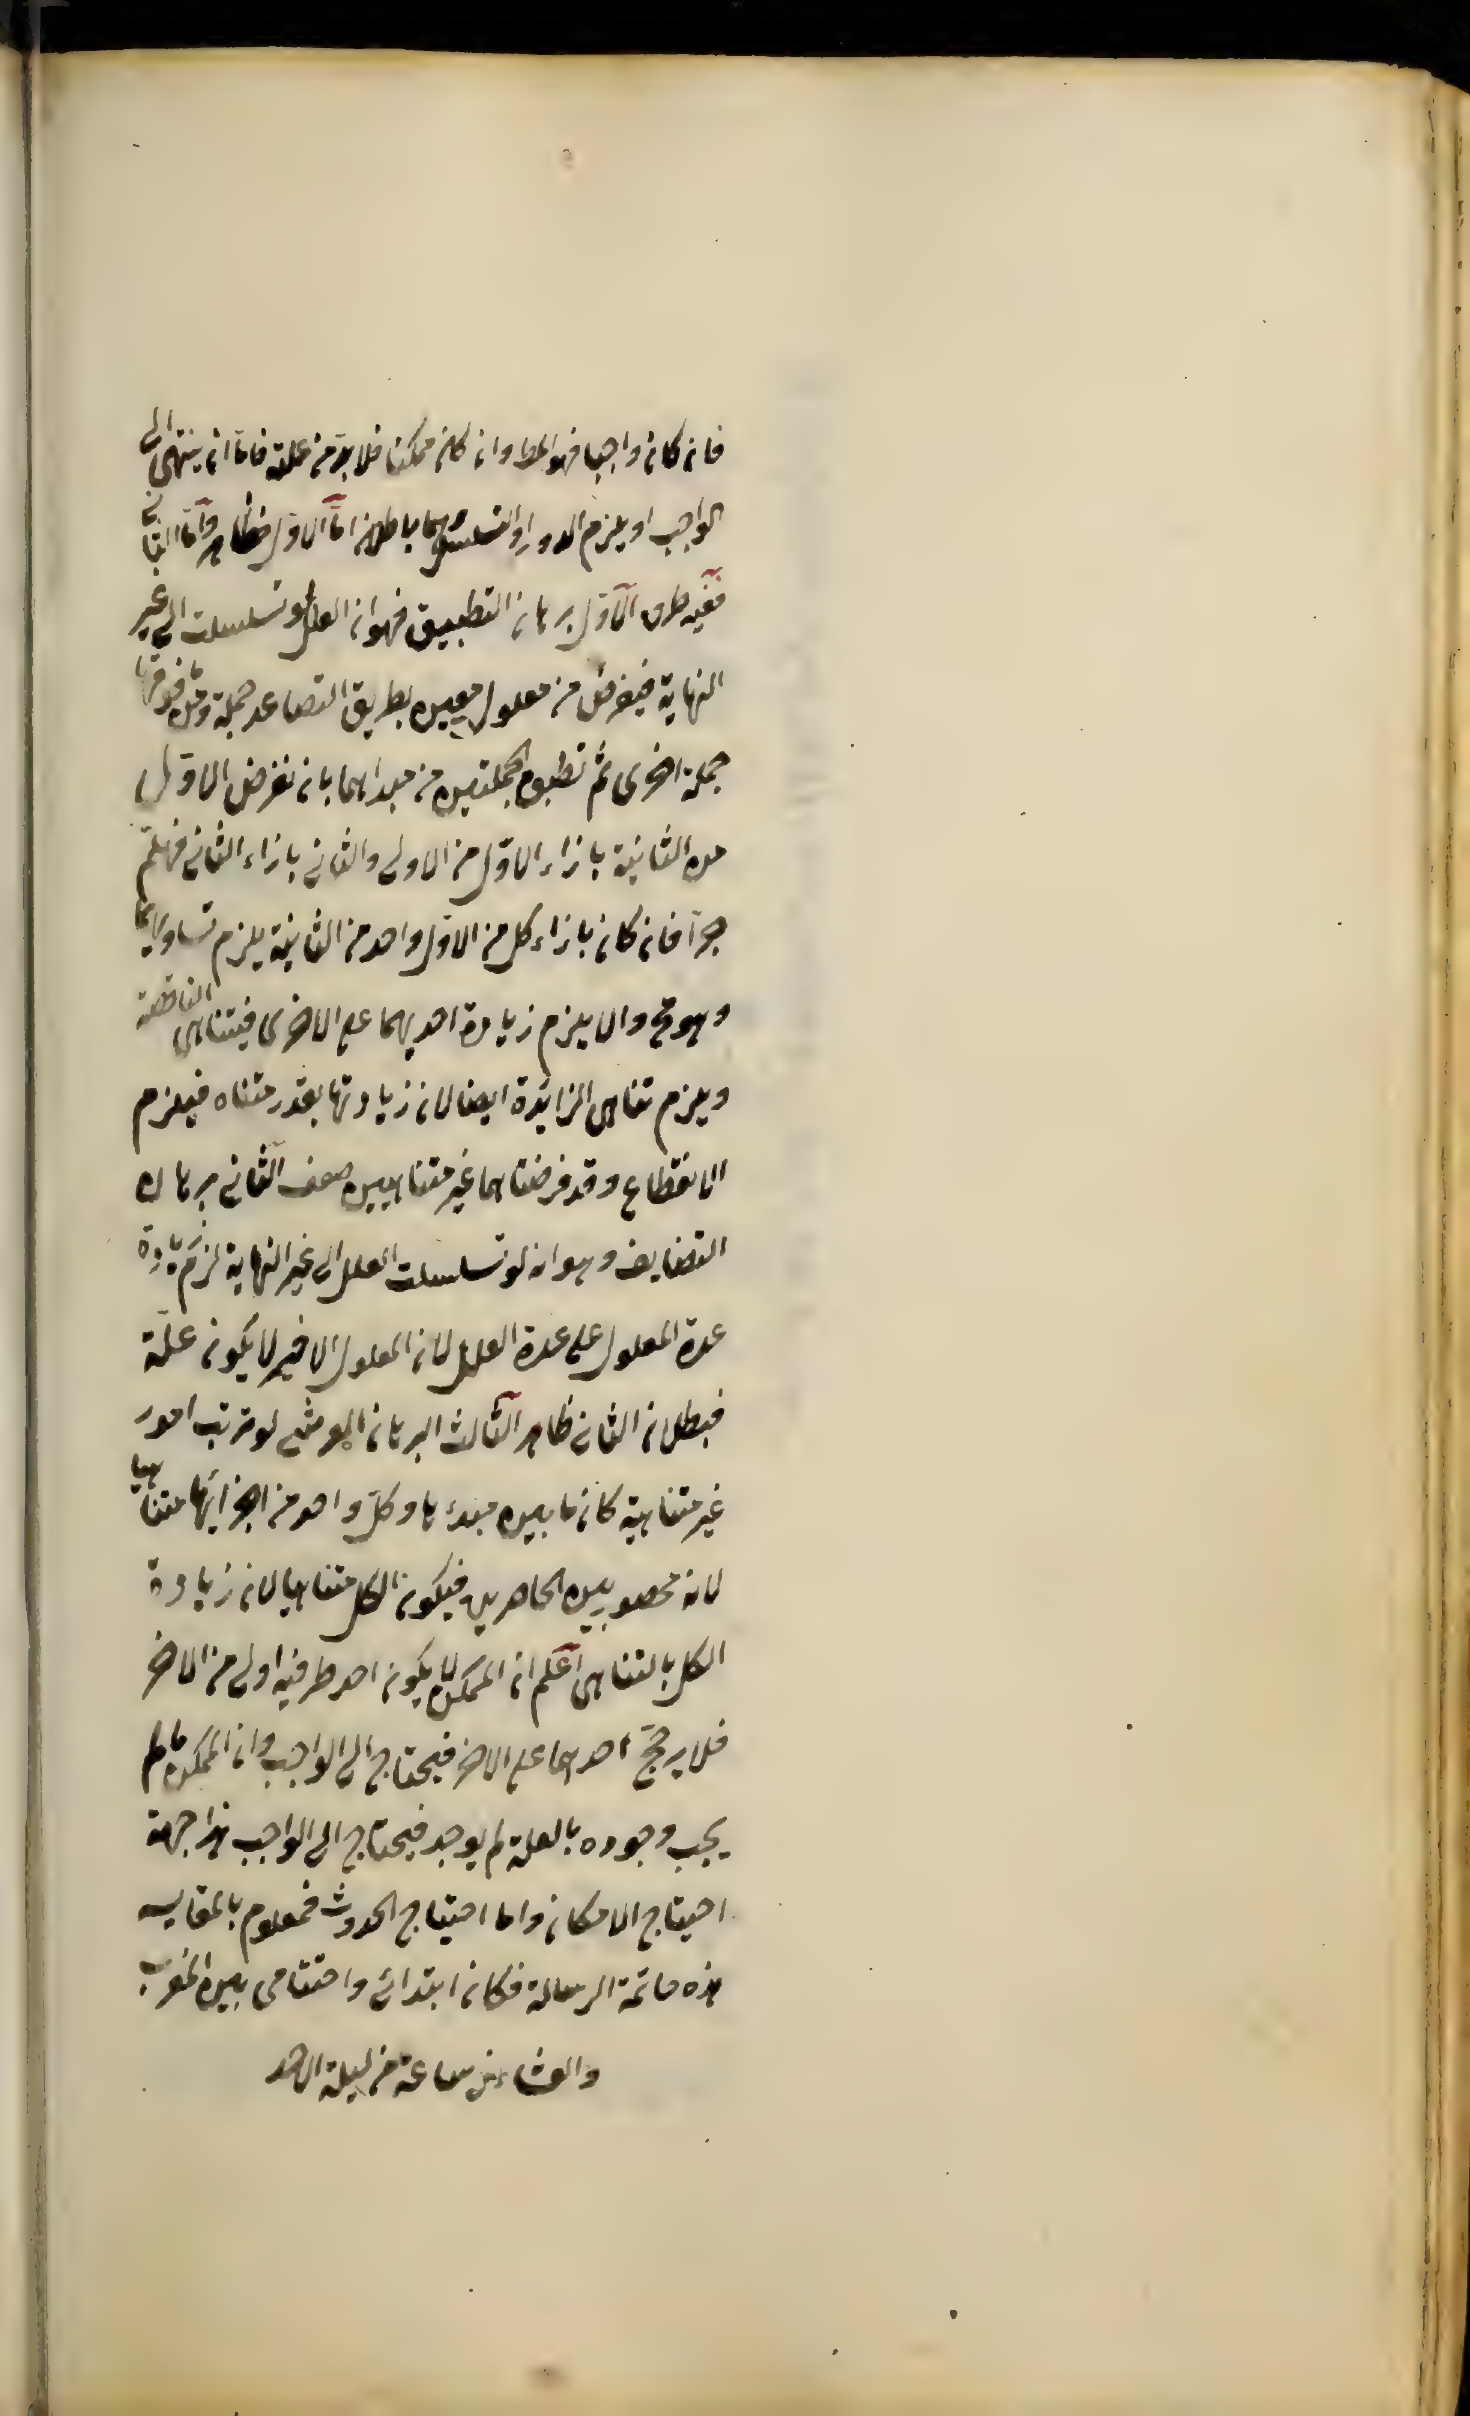 فان كان واجبا فهو المط وان كان ممكنا فلا بد من علة فاما ان ينتهى الى
الواجب او يلزم الدور او التسلسل وهما باطلان اما الاول فظاهر واما الثانى
ففيه طرق الاول برهان التطبيق فهو ان العلل لو تسلسلت الى غير
النهاية فيفرض من معلول معين بطريق التصاعد جملة ومما فوقها
جملة اخرى ثم نطبق الجملتين من مبداهما بان نفرض الاول
من الثانية بازاء الاول من الاولى والثانى بازاء الثانى فهلم
جرا فان كان بازاء كل من الاول واحد من الثانية يلزم تساويهما
وهو مح والا يلزم زيادة احديهما على الاخرى فيتناهى الناقصة
ويلزم تناهى الزائدة ايضا لان زيادتها بقدر متناه فيلزم
الانقطاع وقد فرضناهما غير متناهيين صف الثانى برهان
التضايف وهو انه لو تسلسلت العلل الى غير النهاية لزم زيادة
عدة المعلول على عدة العلل لان المعلول الاخير لا يكون علة
فبطلان الثانى ظاهر الثالث البرهان العرشى لو ترتب امور
غير متناهية كان ما بين مبدئها وكل واحد من اجزائها متناهيا
لانه محصور بين الحاصرين فيكون الكل متناهيا لان زيادة
الكل بالتناهى اعلم ان الممكن لا يكون احد طرفيه اولى من الاخر
فلا يرجح احدهما على الاخر فيحتاج الى الواجب وان الممكن ما لم
يجب وجوده بالعلة لم يوجد فيحتاج الى الواجب هذا جهة
احتياج الامكان واما احتياج الحدوث فمعلوم بالمقايسه
هذه خاتمة الرسالة فكان ابتدائى واختتامى بين المغرب
والعشاء ساعة من ليلة الاحد